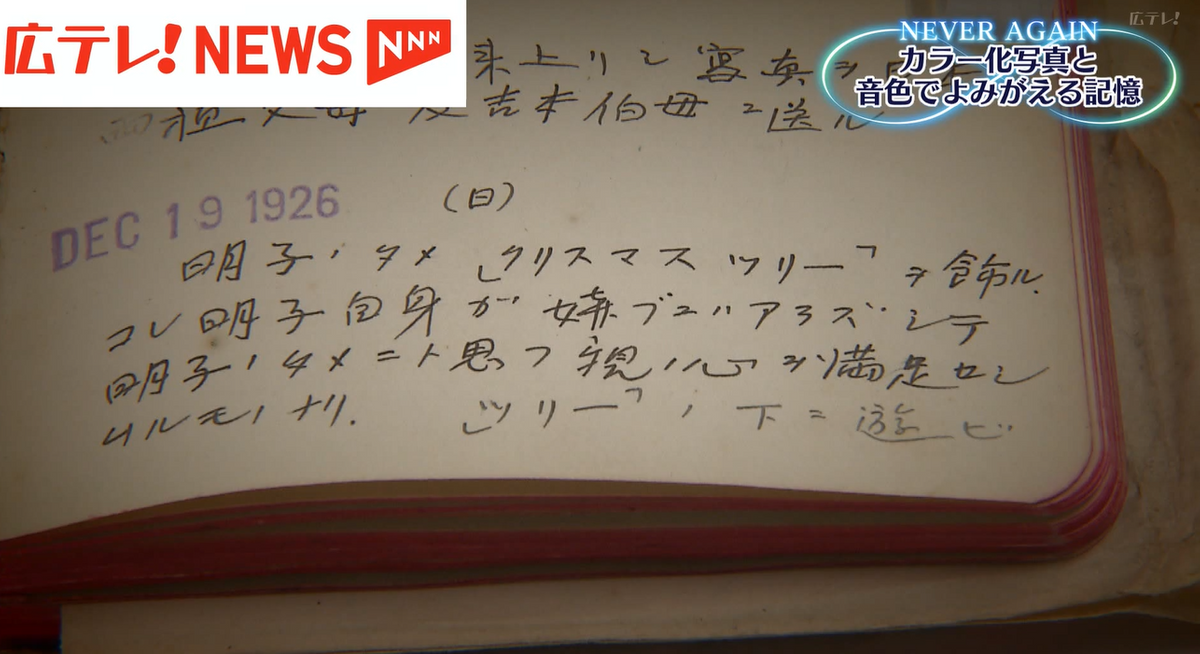 広テレ!NEWS NNN
広テレ!
NEVER AGAIN
カラー化写真と
音色でよみがえる記憶
来上リシ寫真ヲ
祖父母及吉本伯母ニ送ル
DEC 19 1926 (日)
明子ノタメ「クリスマスツリー」ヲ飾ル.
コレ明子自身が嬉ブニハアラズシテ
明子ノタメニト思フ親ノ心ヲ満足セシ
ムルモノナリ. 「ツリー」ノ下ニ遊ビ